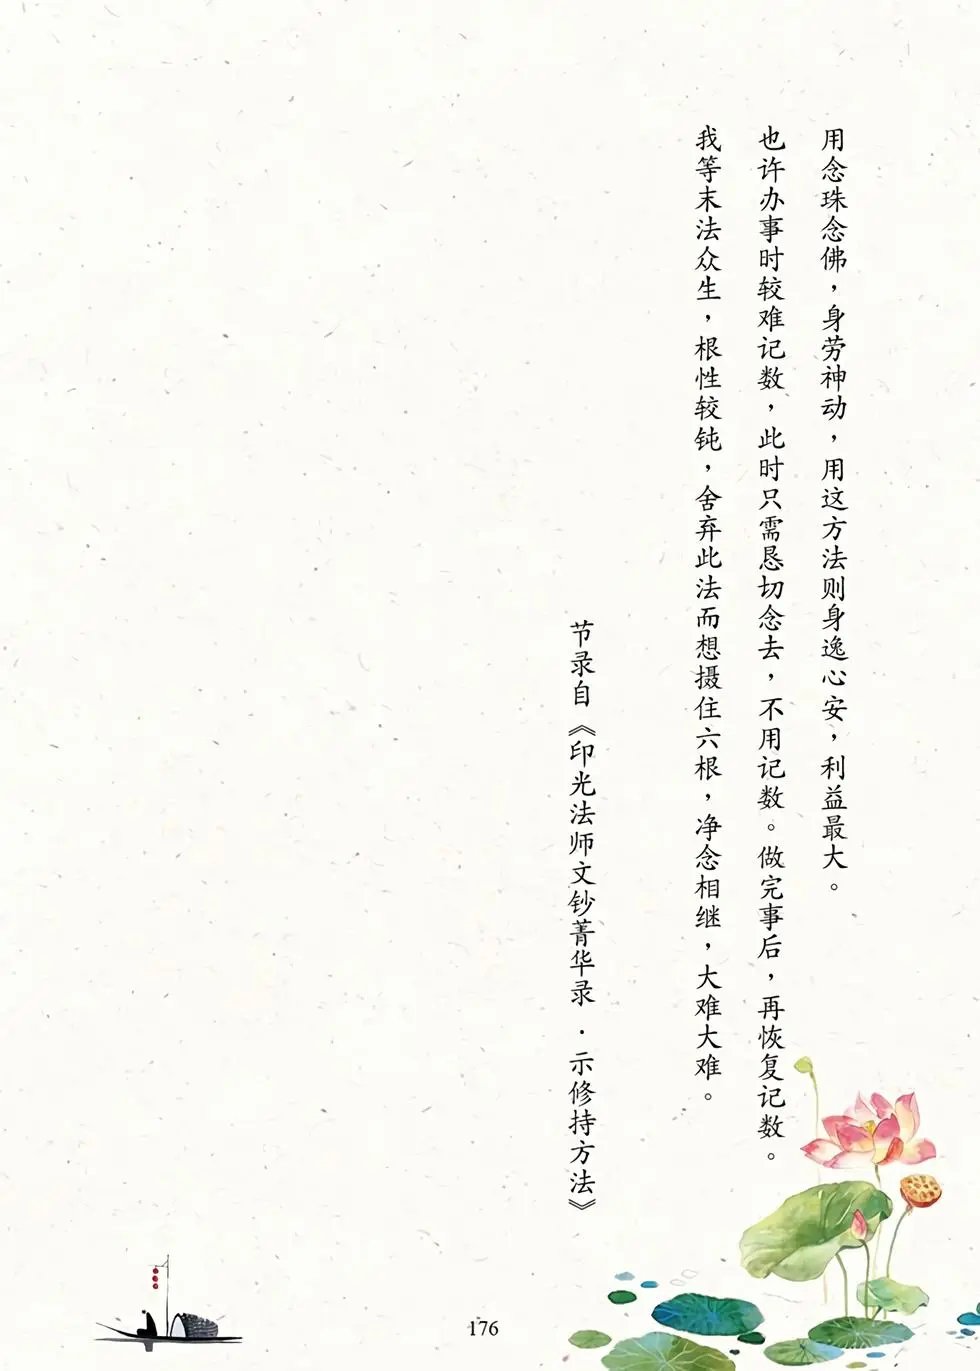 用念珠念佛，身劳神动，用这方法则身逸心安，利益最大。
也许办事时较难记数，此时只需恳切念去，不用记数。做完事后，再恢复记数。
我等末法众生，根性较钝，舍弃此法而想摄住六根，净念相继，大难大难。
节录自《印光法师文钞菁华录．示修持方法》
176